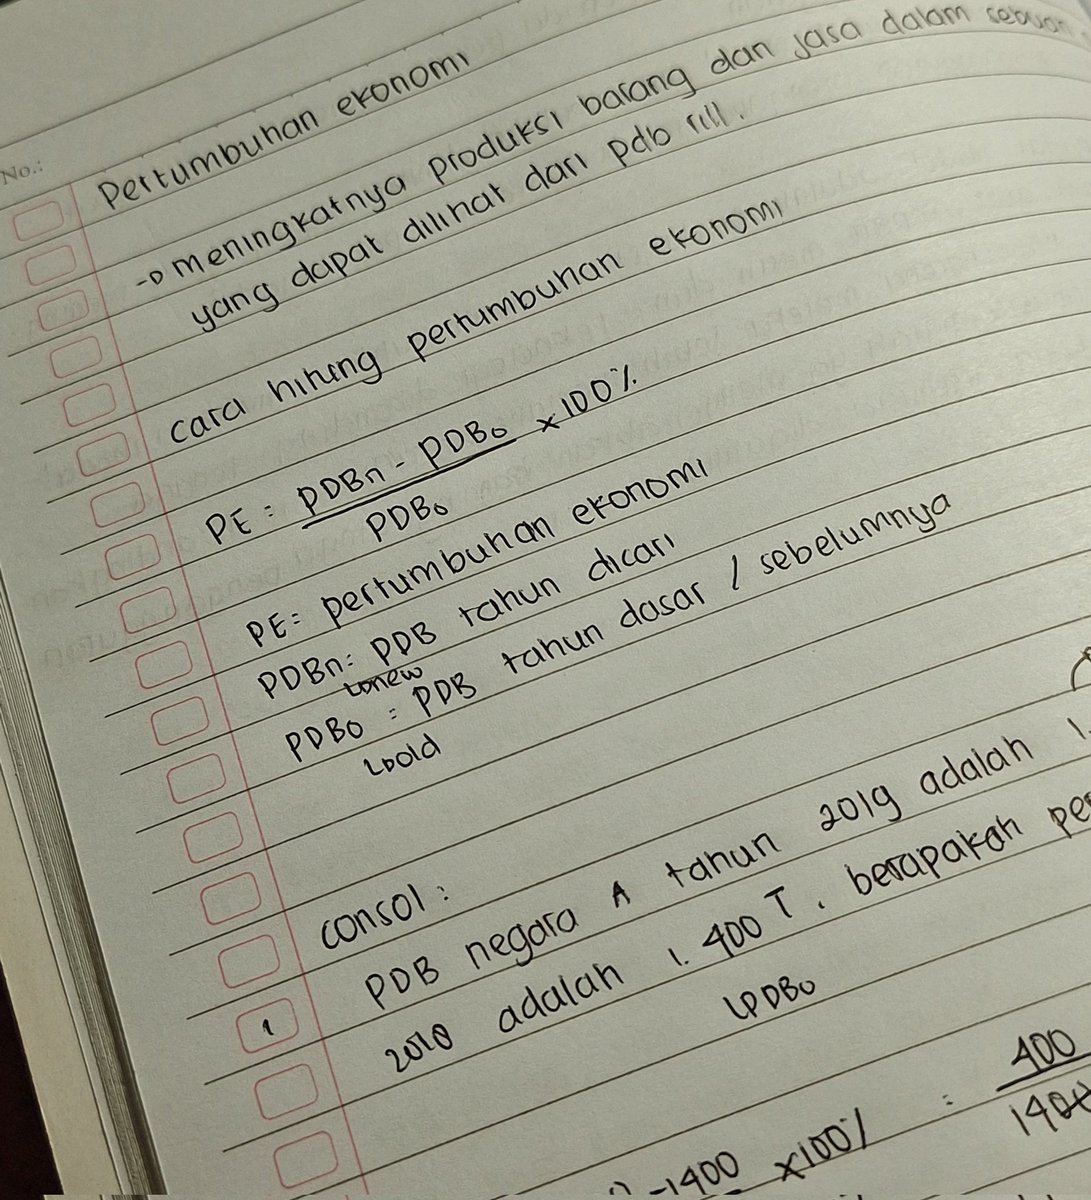 No.:
Pertumbuhan ekonomi
→ meningkatnya produksi barang dan jasa dalam
yang dapat dilihat dari pdb rill.
cara hitung pertumbuhan ekonomi
PE = PDBn - PDB₀ x 100%
PDB₀
PE = pertumbuhan ekonomi
PDBn = PDB tahun dicari
↳ new
PDB₀ = PDB tahun dasar / sebelumnya
↳ old
consol :
1 PDB negara A tahun 2019 adalah 1.
2018 adalah 1.400 T. berapakah
↳ PDB₀
-1400 x100% = 400